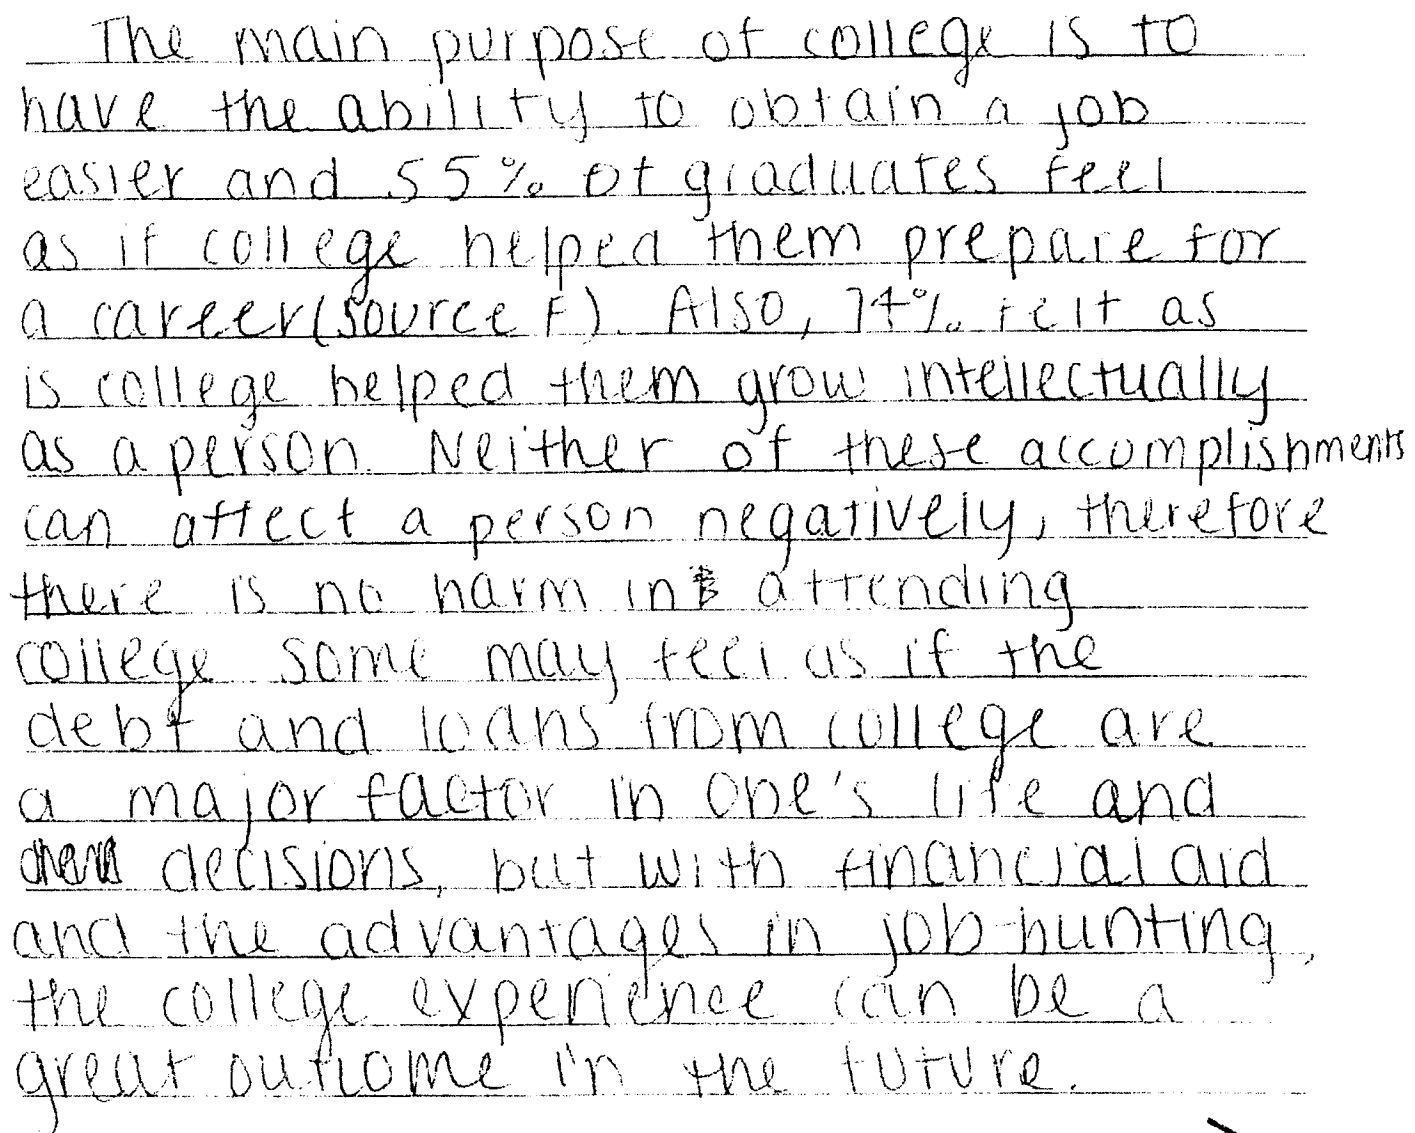 The main purpose of college is to
have the ability to obtain a job
easier and 55% of graduates feel
as if college helped them prepare for
a career (source F). Also, 74% felt as
is college helped them grow intellectually
as a person. Neither of these accomplishments
can affect a person negatively, therefore
there is no harm in attending
college some may feel as if the
debt and loans from college are
a major factor in one's life and
decisions, but with financial aid
and the advantages in job-hunting,
the college experience can be a
great outcome in the future.